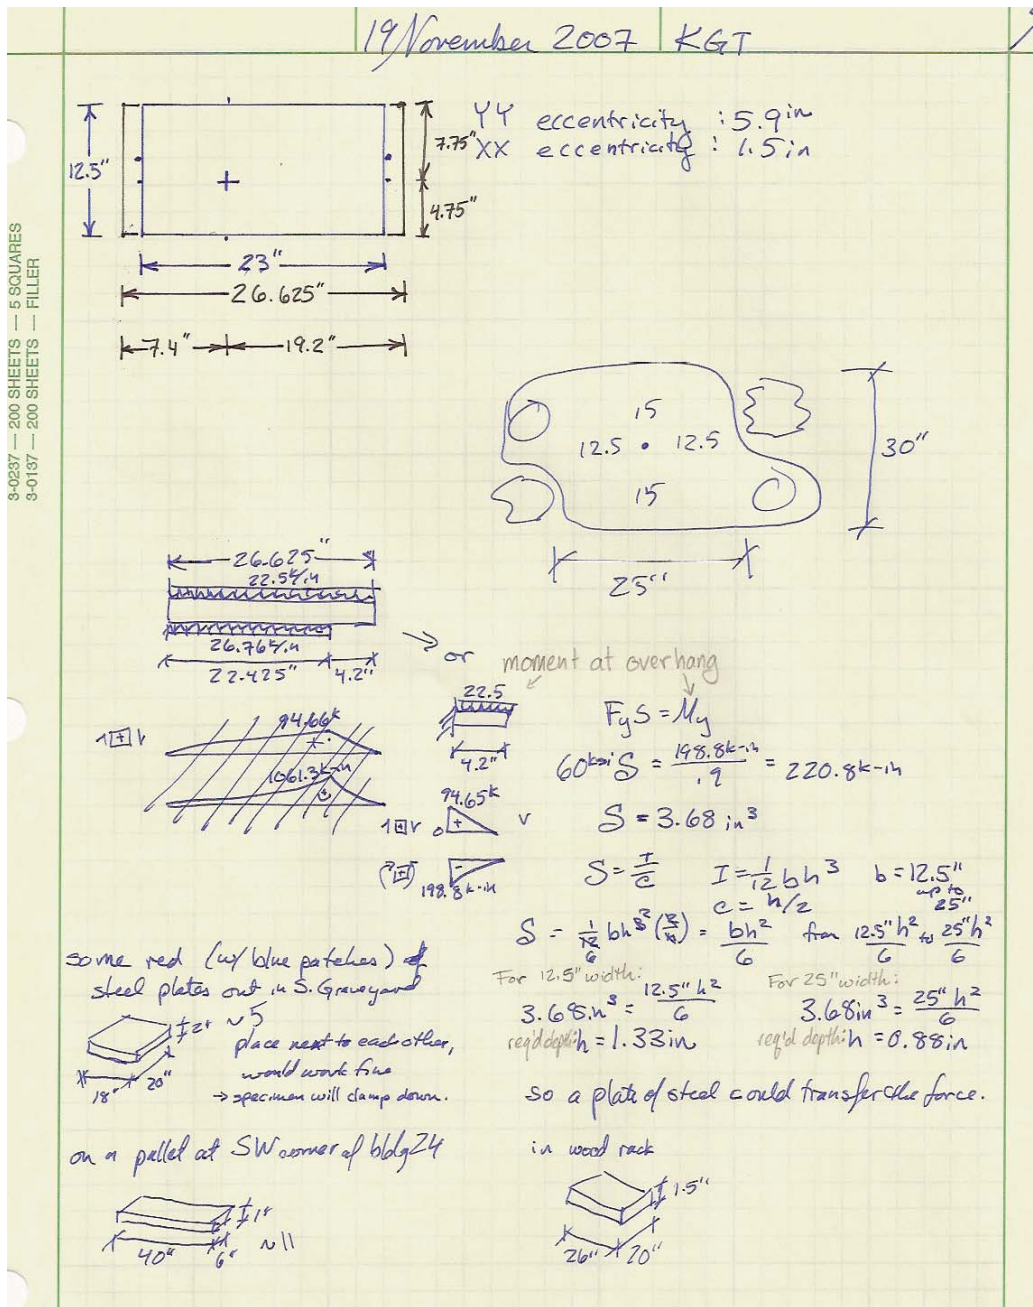 19 November 2007 KGT
3-0237 — 200 SHEETS — 5 SQUARES
3-0137 — 200 SHEETS — FILLER
12.5"
7.75"
4.75"
23"
26.625"
7.4" 19.2"
YY eccentricity : 5.9 in
XX eccentricity : 1.5 in
15
12.5 • 12.5
15
30"
25"
26.625"
22.5 k/in
26.76 k/in
22.425" 4.2"
→ or
moment at overhang
22.5
4.2"
94.66k
1061.3k-in
94.65k
0 + V
198.8k-in
FyS = My
60ksi S = 198.8k-in / .9 = 220.8k-in
S = 3.68 in³
S = I/c I = 1/12 bh³ b = 12.5"
c = h/2 up to 25"
S = 1/12 bh³ (2/h) = bh²/6 from 12.5"h²/6 to 25"h²/6
For 12.5" width:
3.68in³ = 12.5" h²/6
req'd depth: h = 1.33in
For 25" width:
3.68in³ = 25" h²/6
req'd depth: h = 0.88in
so a plate of steel could transfer the force.
some red (w/ blue patches)
steel plates out in S. Graveyard
2" ~5
18" 20"
place next to each other,
would work fine
→ specimen will clamp down.
on a pallet at SW corner of bldg 24
1"
40" 6" ~11
in wood rack
1.5"
26" 20"